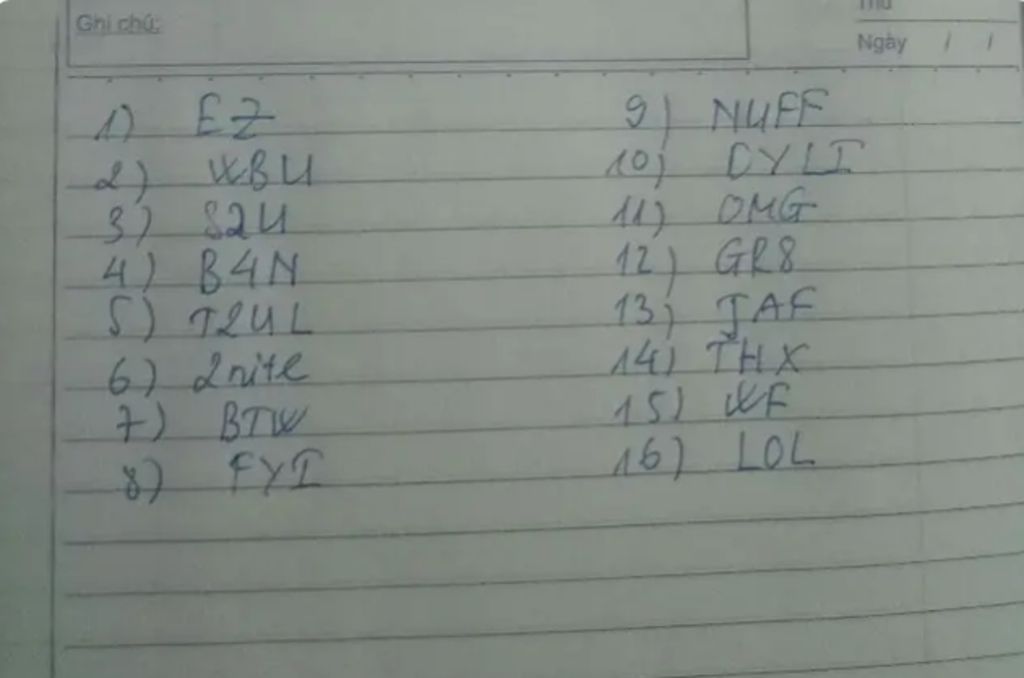 Ghi chú:
Thứ
Ngày / /
1) EZ
2) WBU
3) S2U
4) B4N
5) T2UL
6) 2nite
7) BTW
8) FYI
9) NUFF
10) CYLI
11) OMG
12) GR8
13) JAF
14) THX
15) WF
16) LOL